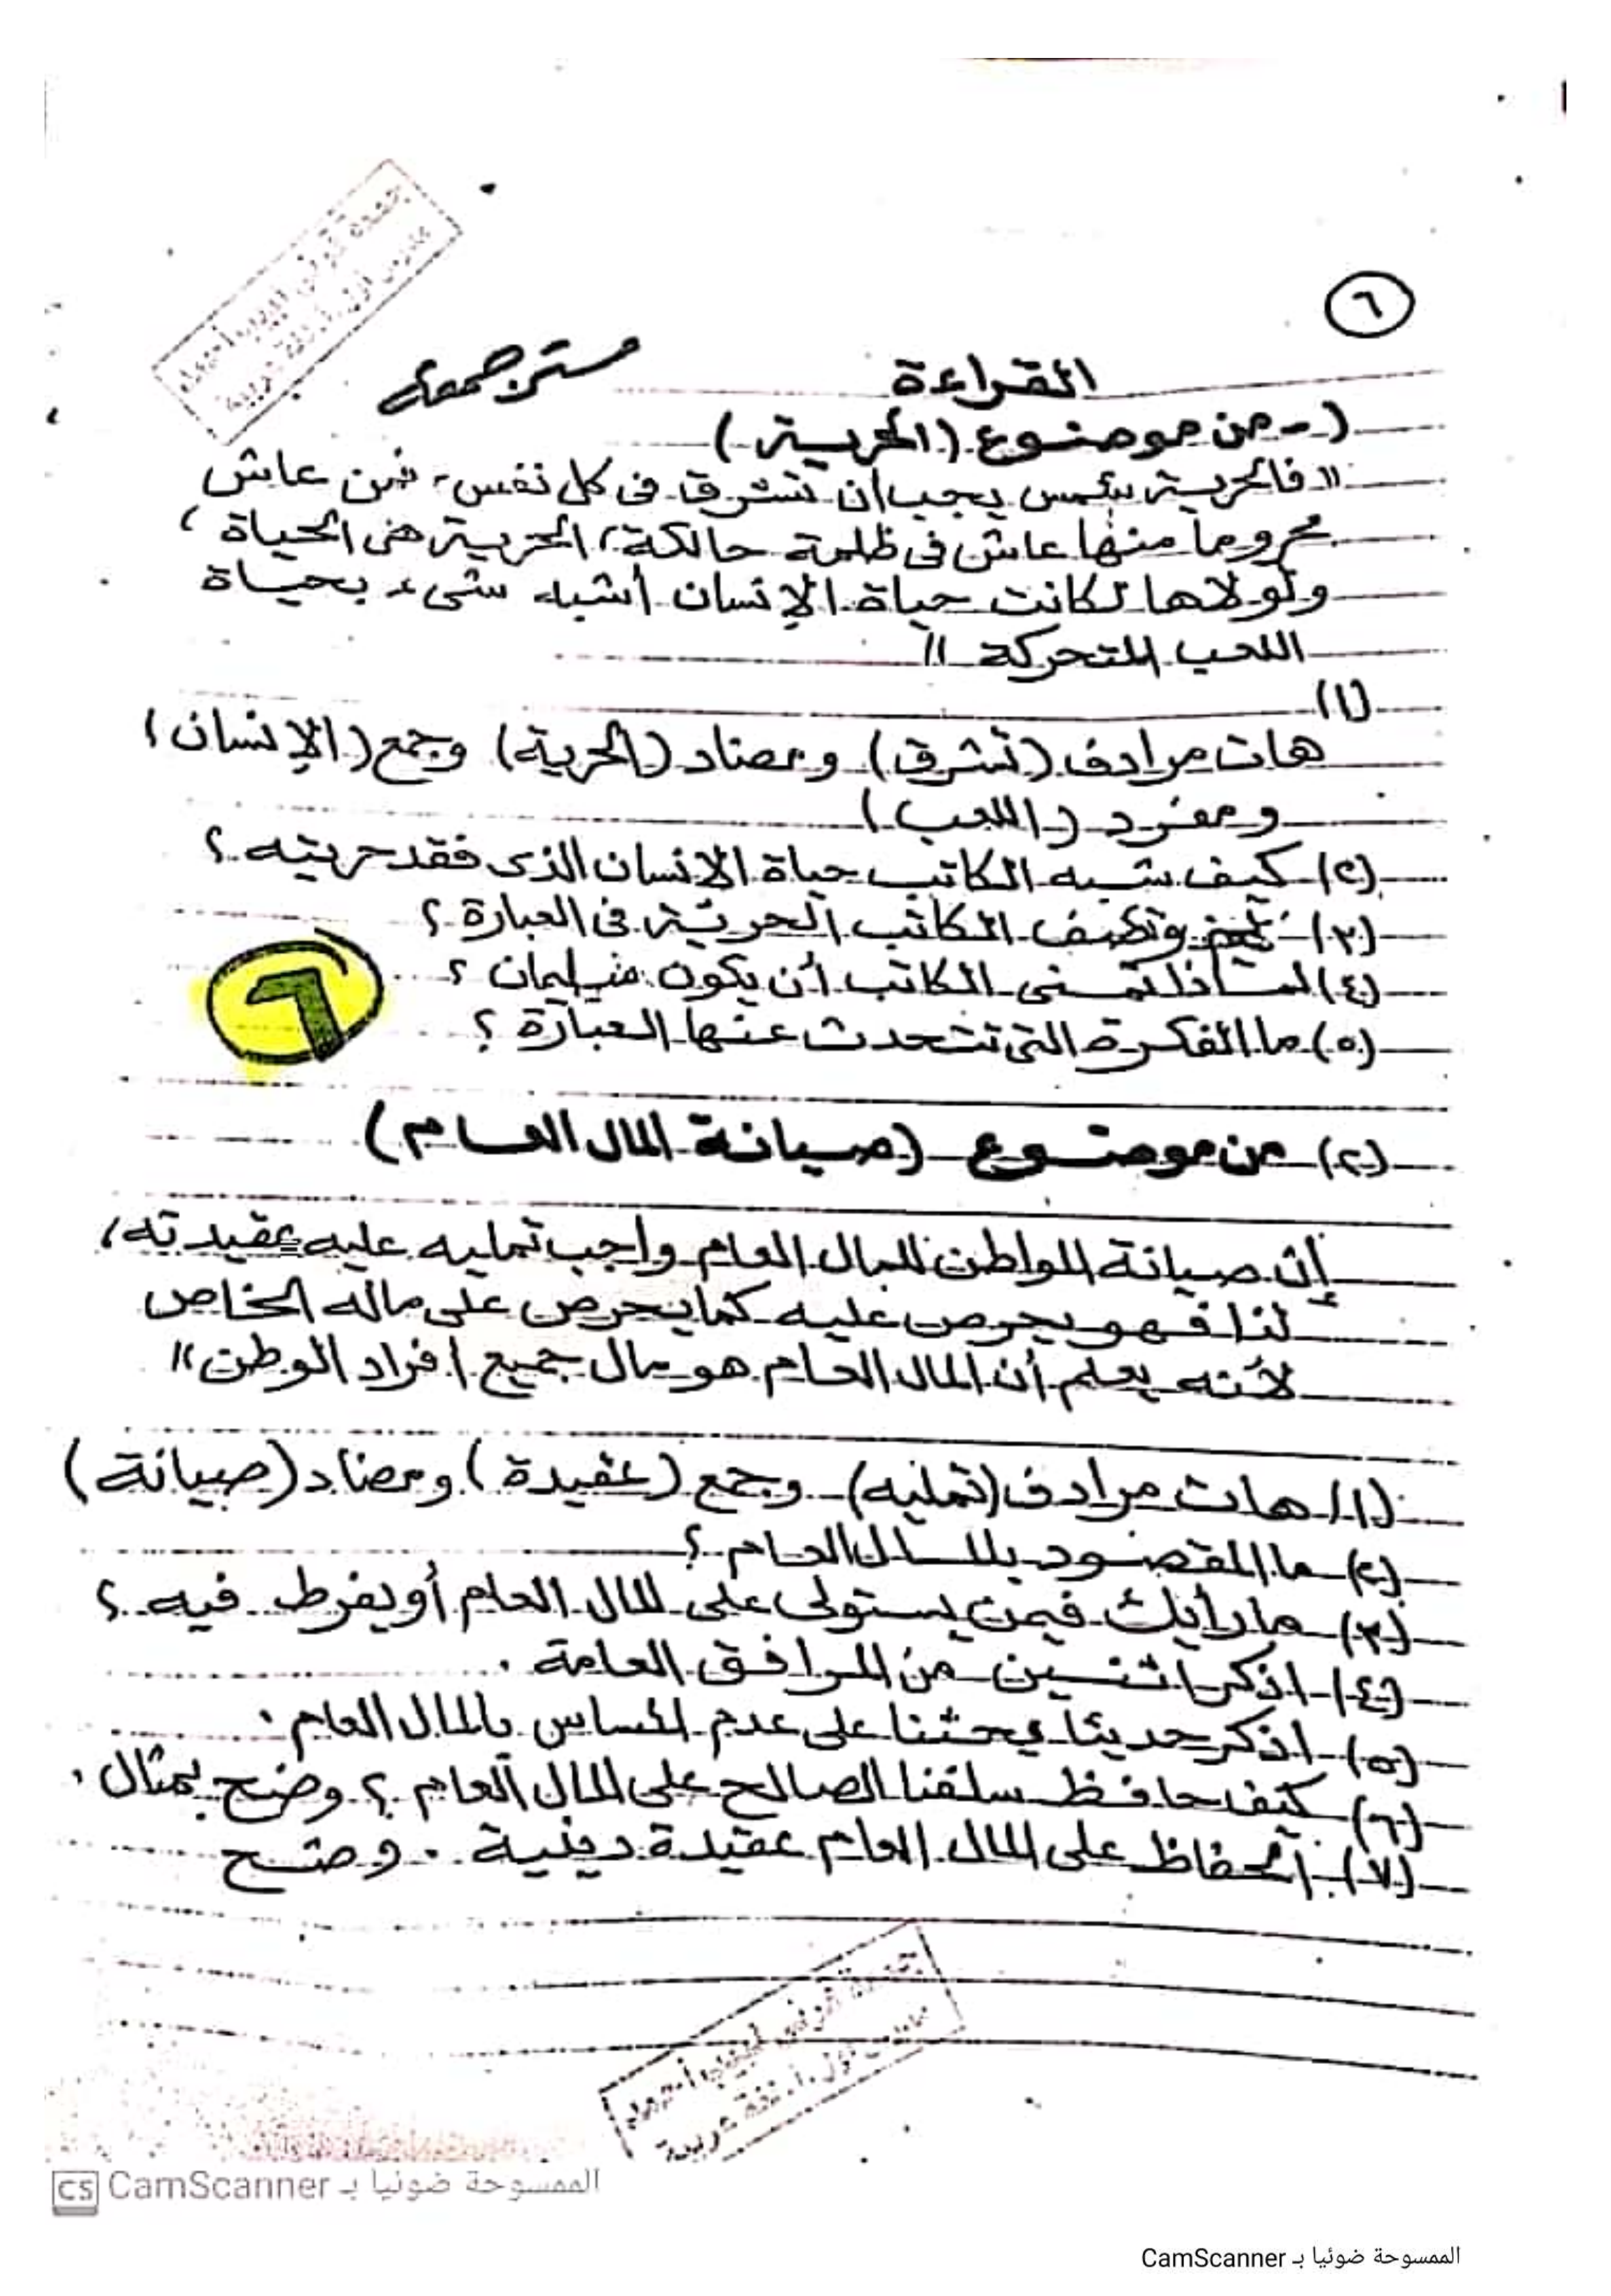 ٦
القراءة
١- من موضوع (الحرية)
"فالحرية شمس يجب أن تشرق فى كل نفس، فمن عاش
محروما منها عاش فى ظلمة حالكة، الحرية هى الحياة،
ولولاها لكانت حياة الإنسان أشبه شىء بحياة
اللعب المتحركة"
(١)
هات مرادف (تشرق) ومضاد (الحرية) وجمع (الإنسان)
ومفرد (اللعب)
(٢) كيف شبه الكاتب حياة الإنسان الذى فقد حريته؟
(٣) الكاتب الحرية فى العبارة؟
(٤) لماذا تمنى الكاتب أن يكون
(٥) ما الفكرة التى تتحدث عنها العبارة؟
٦
(٢) من موضوع (صيانة المال العام)
إن صيانة المواطن للمال العام واجب تمليه عليه عقيدته،
لذا فهو يحرص عليه كما يحرص على ماله الخاص
لأنه يعلم أن المال العام هو مال جميع افراد الوطن"
(١) هات مرادف (تمليه) وجمع (عقيدة) ومضاد (صيانة)
(٢) ما المقصود بالمال العام؟
(٣) ما رأيك فيمن يستولى على المال العام أو يفرط فيه؟
(٤) اذكر اثنين من المرافق العامة.
(٥) اذكر حديثا يحثنا على عدم المساس بالمال العام.
(٦) كيف حافظ سلفنا الصالح على المال العام؟ وضح بمثال.
(٧) الحفاظ على المال العام عقيدة دينية. وضح
الممسوحة ضوئيا بـ CamScanner
الممسوحة ضوئيا بـ CamScanner